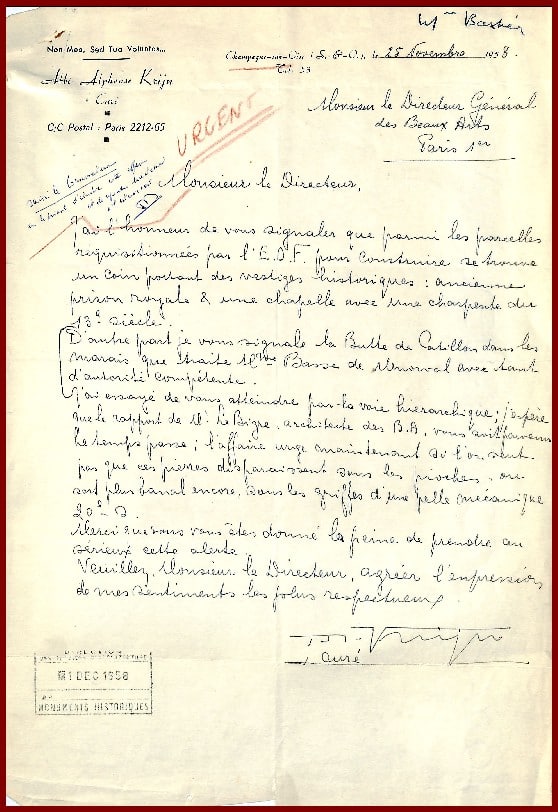 Non Mea, Sed Tua Voluntas...
Abbé Alphonse Krijn
Curé
C.C Postal : Paris 2212-65
Champagne-sur-Oise (S.-&-O.), le 28 Novembre 1958.
Tél. 28
Monsieur le Directeur Général
des Beaux Arts
Paris 1er
URGENT
Monsieur le Directeur,
J'ai l'honneur de vous signaler que parmi les parcelles
réquisitionnées par l'E.D.F. pour construire se trouve
un coin portant des vestiges historiques : ancienne
prison royale & une chapelle avec une charpente du
13e siècle.
D'autre part je vous signale la Butte de Catillon dans les
marais que traite Basse de Menorval avec tant
d'autorité compétente.
J'ai essayé de vous atteindre par la voie hierarchique ; j'espère
que le rapport de Mr Le Bigre, architecte des B.A, vous
le temps passe ; l'affaire urge maintenant si l'on veut
pas que ces pierres disparaissent sous les pioches, ou
sort plus banal encore, sous les griffes d'une pelle mécanique
20e S.
Merci vous êtes donné la peine de prendre au
sérieux cette alerte
Veuillez, Monsieur le Directeur, agréer l'expression
de mes sentiments les plus respectueux.
Krijn
Curé
DIRECTION
1 DEC 1958
MONUMENTS HISTORIQUES